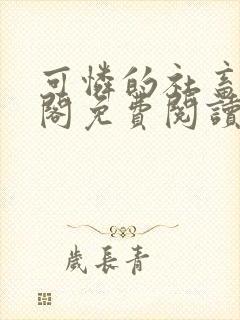 可憐的社畜
閣免費閱讀
歲長青